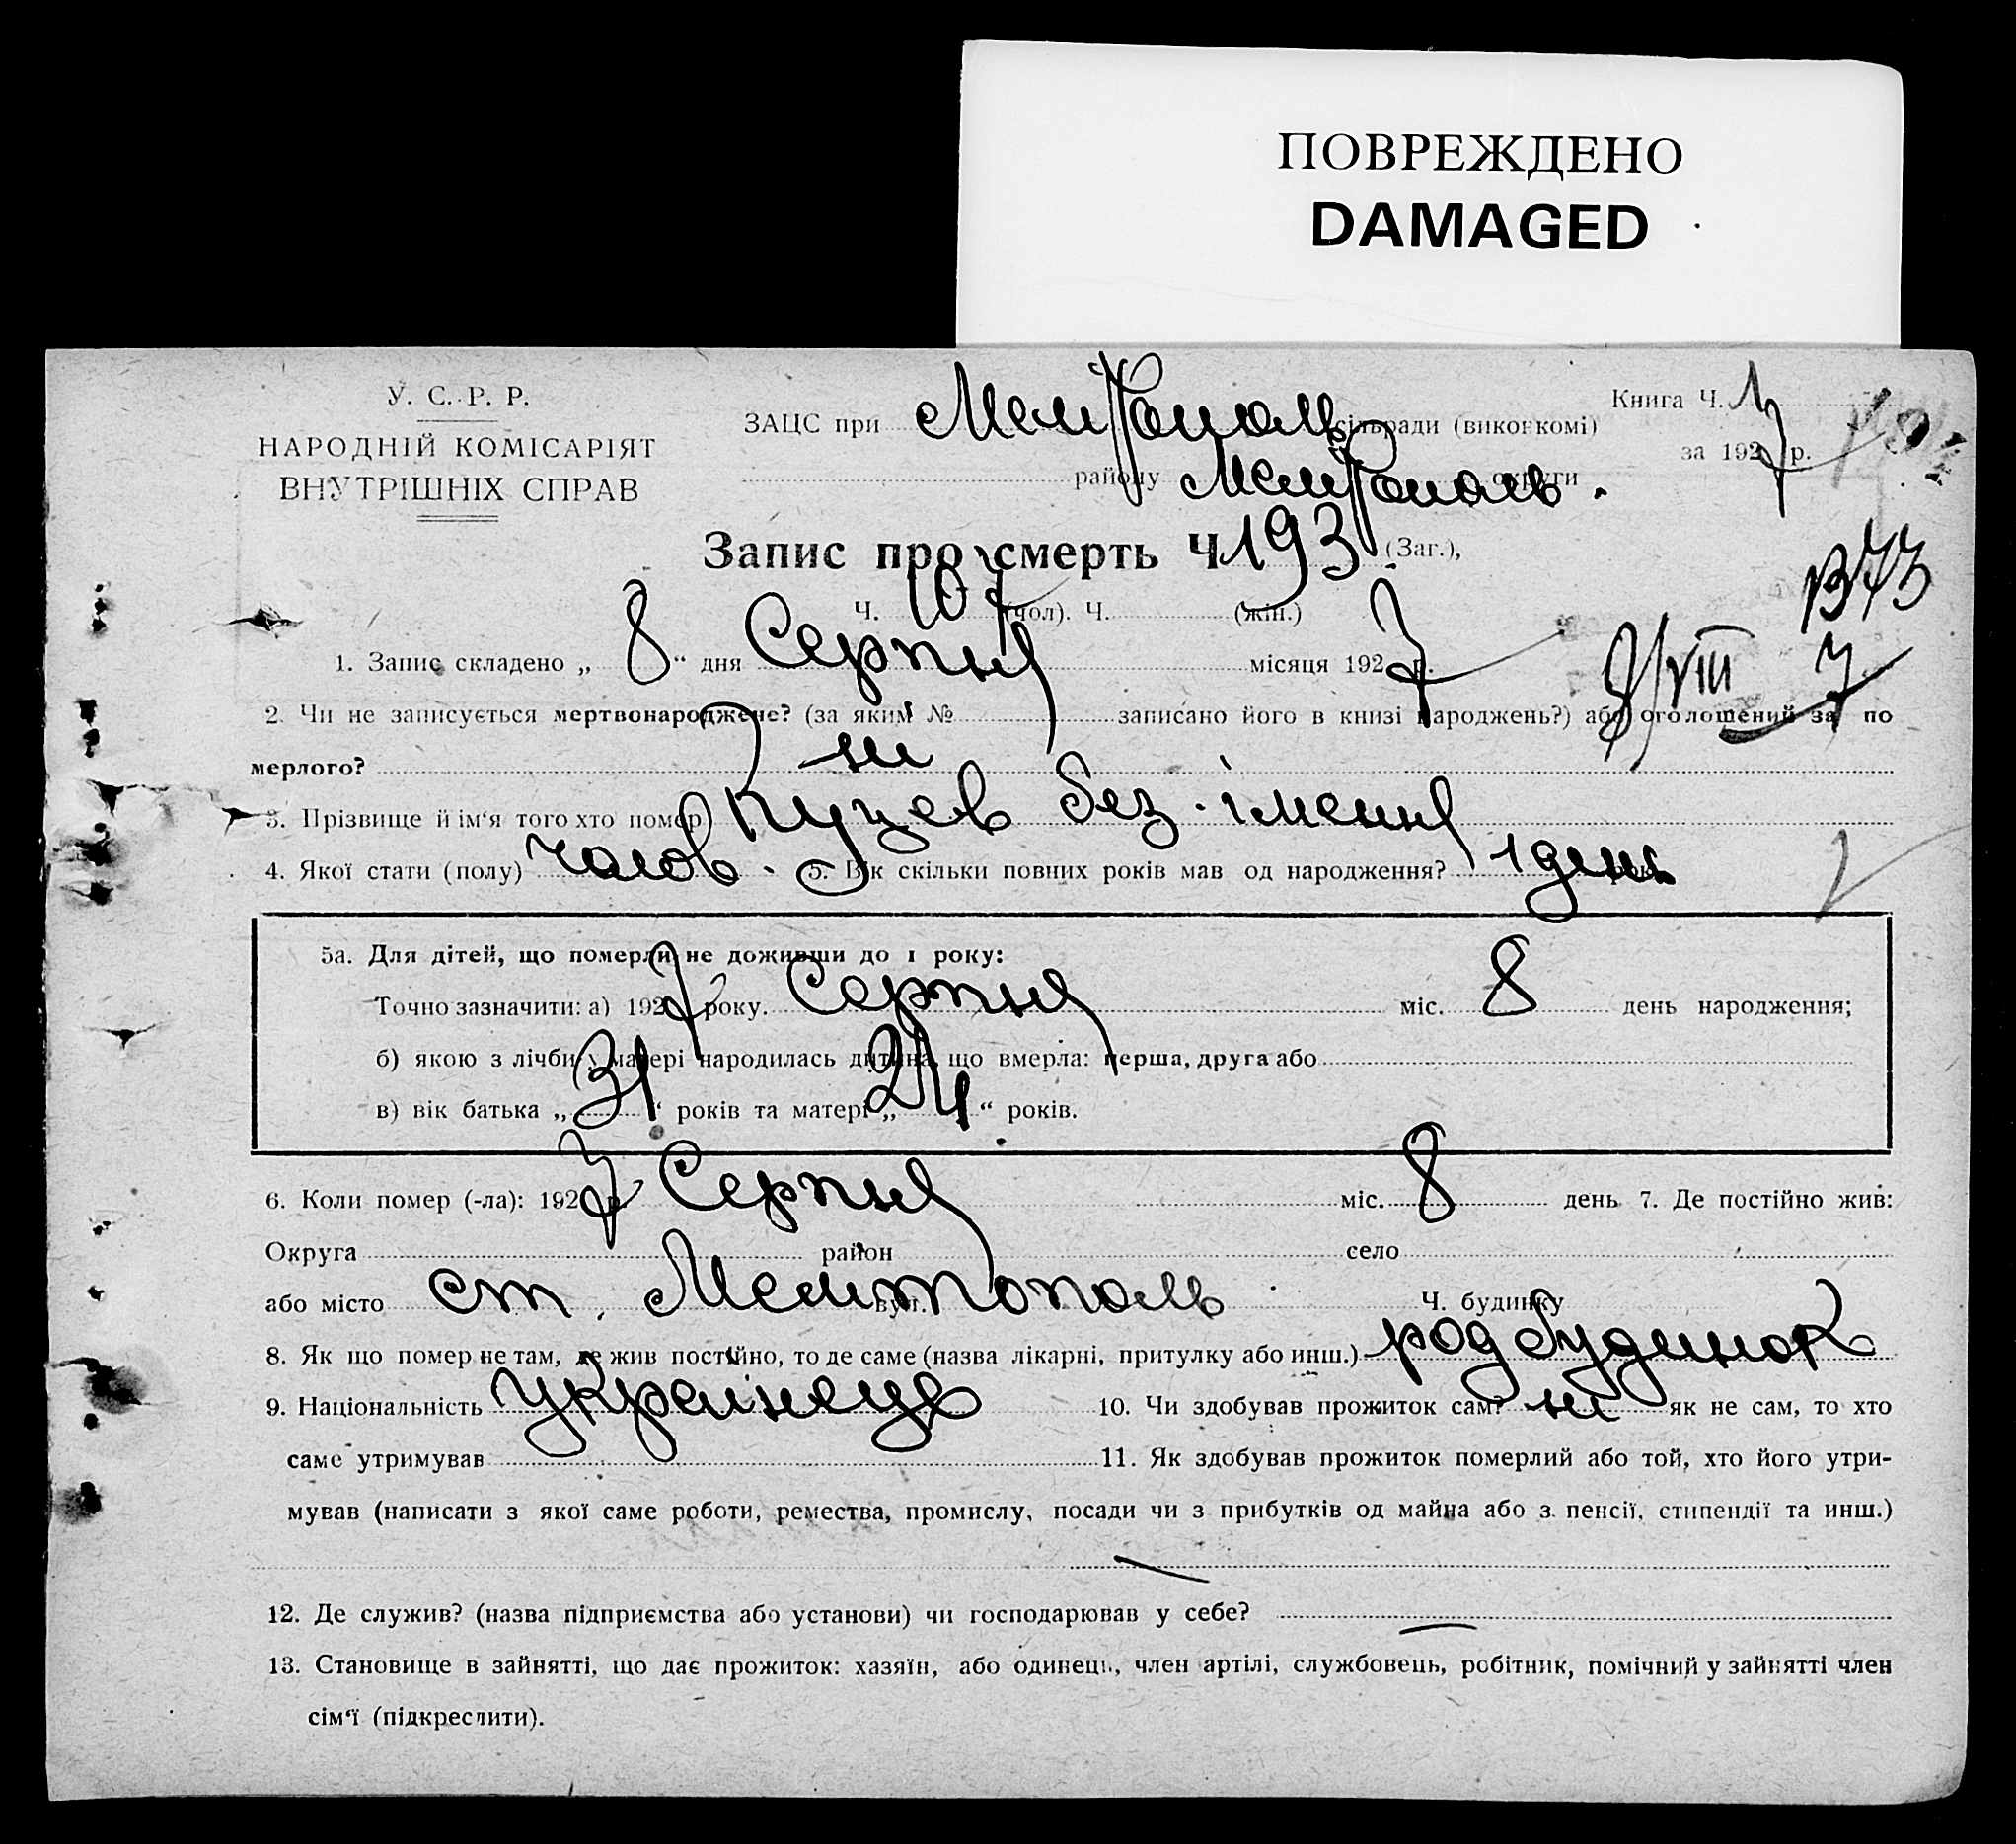 ПОВРЕЖДЕНО
DAMAGED
У. С. Р. Р.
НАРОДНІЙ КОМІСАРІЯТ
ВНУТРІШНІХ СПРАВ
ЗАЦС при Мелітополь сільради (виконкомі)
району Мелітополь округи
Книга Ч. 1
за 1927 р.
Запис про смерть Ч 193 (Заг.),
Ч. 107 (чол). Ч. (жін.)
В73
9/VIII 7
1. Запис складено „ 8 “ дня Серпня місяця 1927 р.
2. Чи не записується мертвонароджене? (за яким № записано його в книзі народжень?) або оголошений за по
мерлого? ні
3. Прізвище й ім‘я того хто помер Куцев без імени
4. Якої стати (полу) чолов. 5. Вік скільки повних років мав од народження? 1 день
5а. Для дітей, що померли не доживши до 1 року:
Точно зазначити: а) 1927 року. Серпня міс. 8 день народження;
б) якою з лічби у матері народилась дитина, що вмерла: перша, друга або
в) вік батька „ 31 “ років та матері „ 24 “ років.
6. Коли помер (-ла): 1927 р. Серпня міс. 8 день 7. Де постійно жив:
Округа район село
або місто ст. Мелітополь вул. Ч. будинку
8. Як що помер не там, де жив постійно, то де саме (назва лікарні, притулку або инш.) род будинок
9. Національність українець 10. Чи здобував прожиток сам? ні як не сам, то хто
саме утримував 11. Як здобував прожиток померлий або той, хто його утри-
мував (написати з якої саме роботи, ремества, промислу, посади чи з прибутків од майна або з пенсії, стипендії та инш.)
12. Де служив? (назва підприємства або установи) чи господарював у себе?
13. Становище в зайнятті, що дає прожиток: хазяїн, або одинець, член артілі, службовець, робітник, помічний у зайнятті член
сім‘ї (підкреслити).